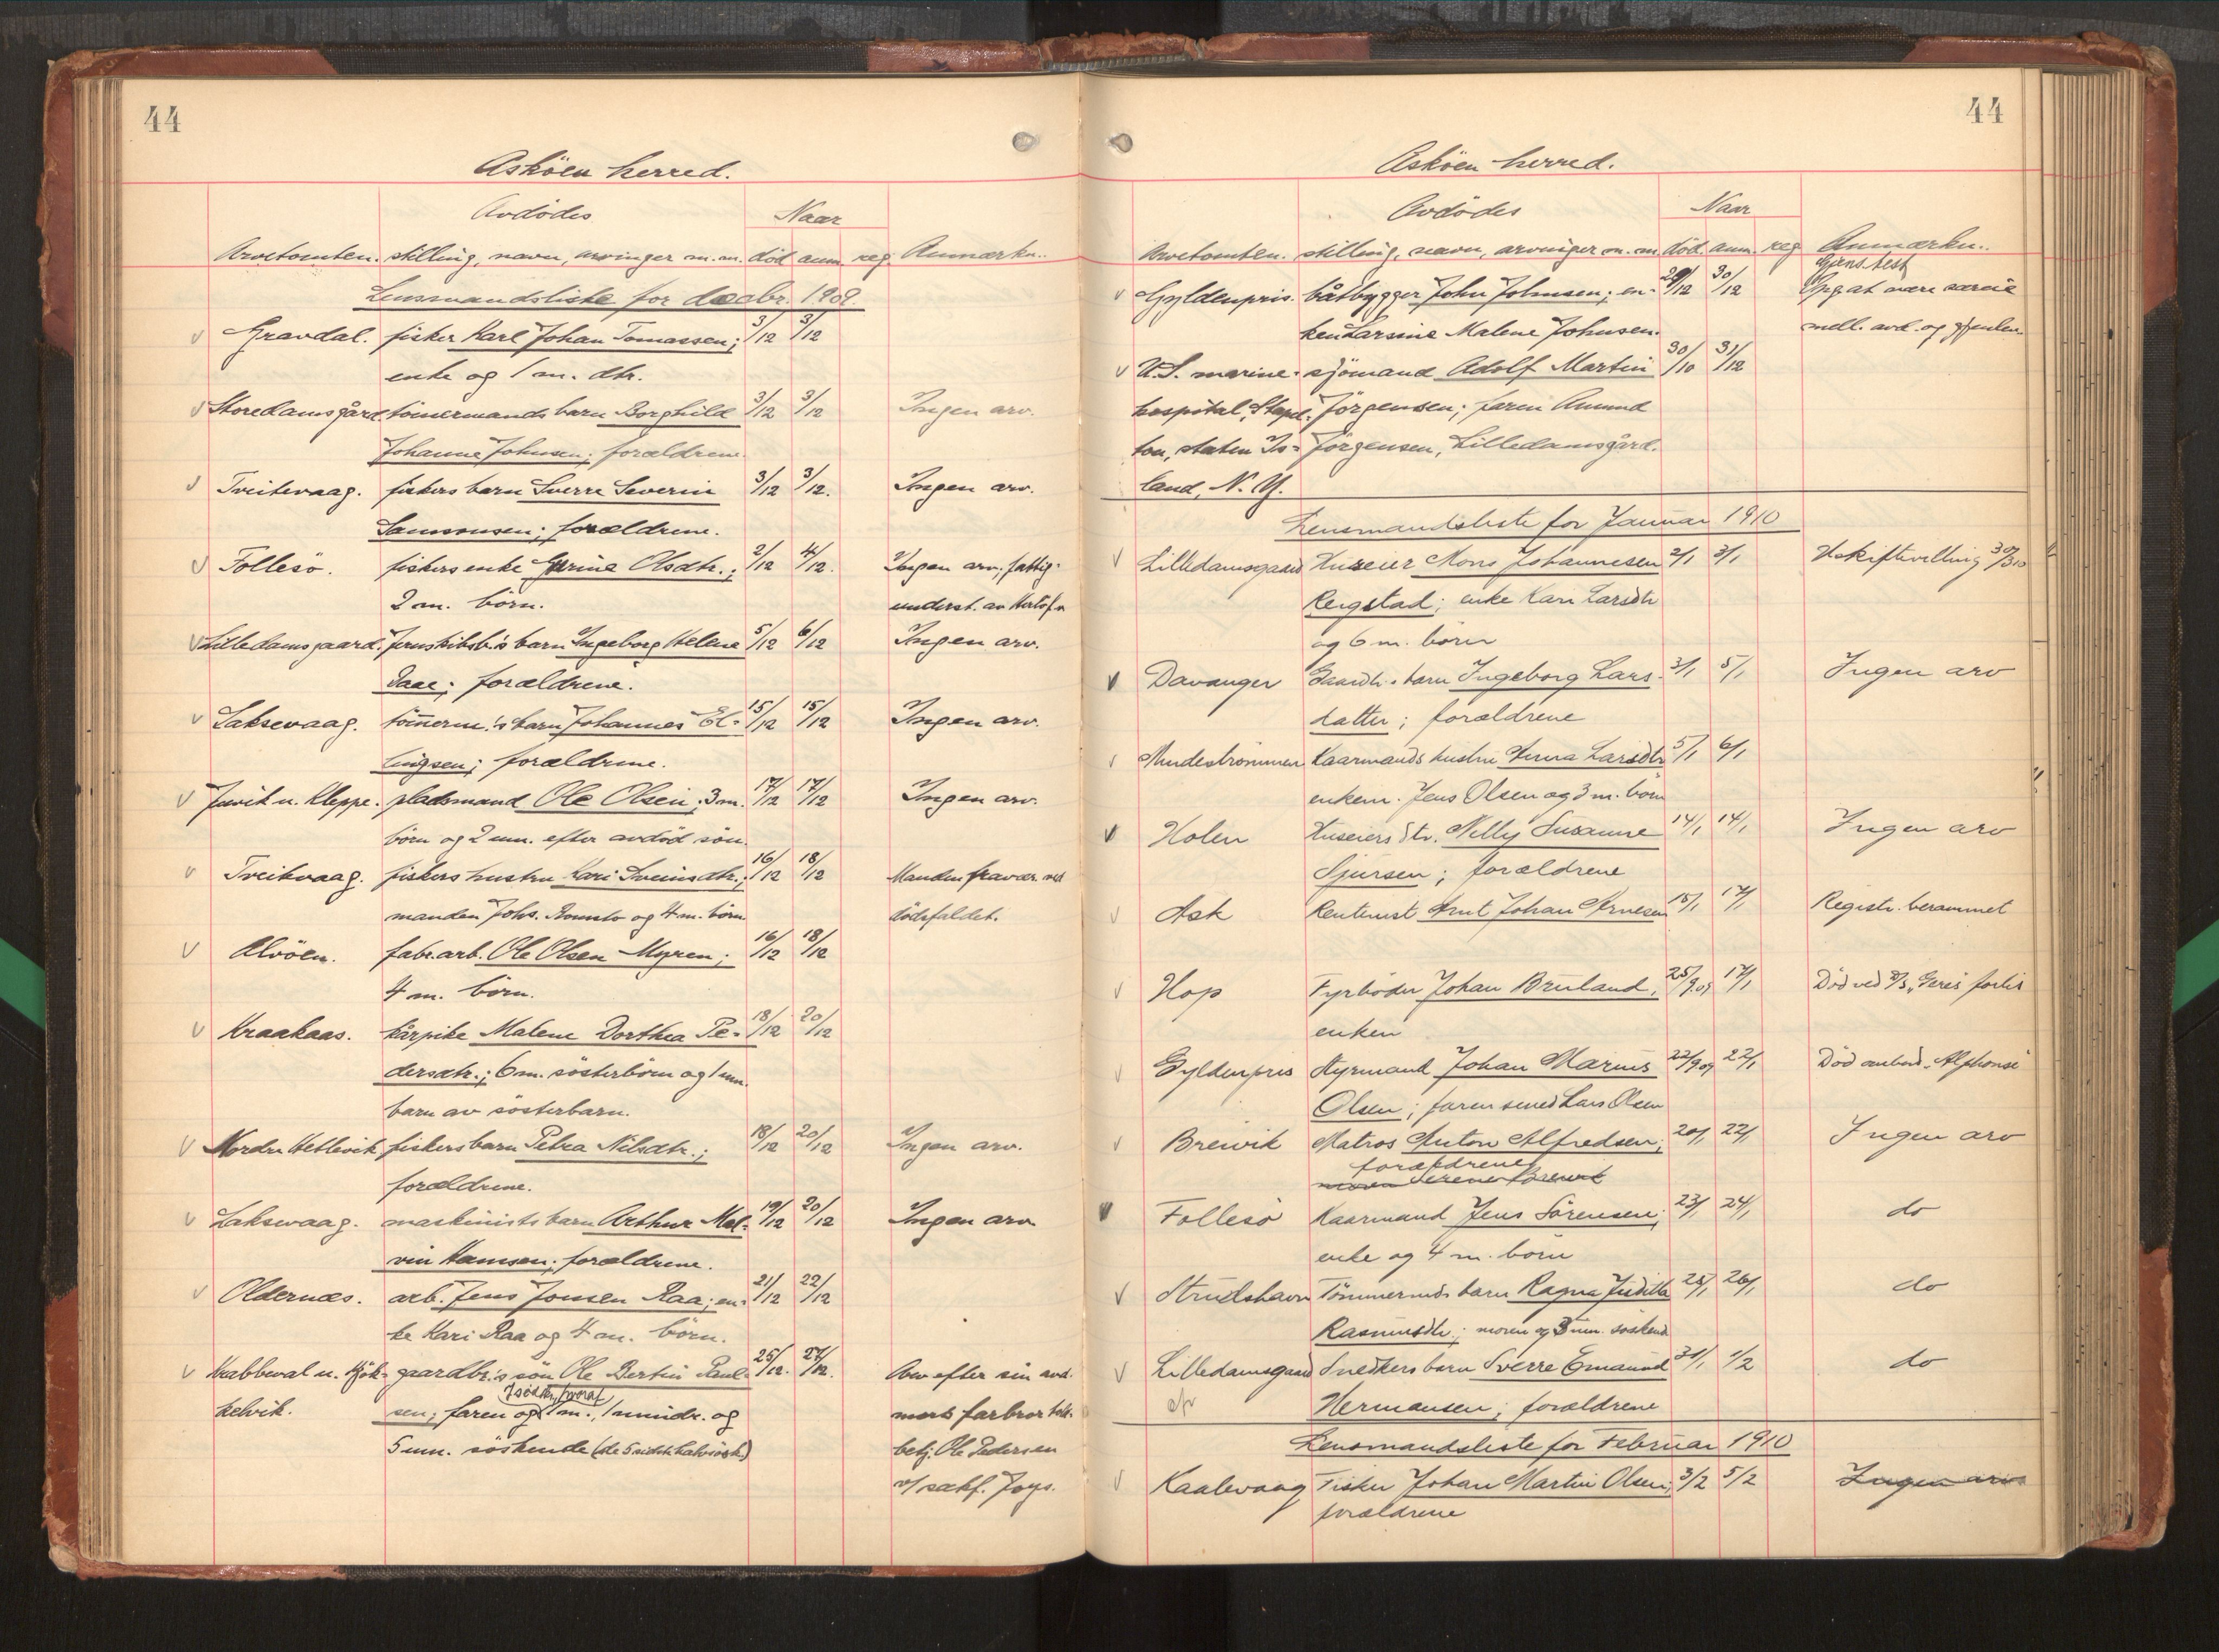 44
Asköen herred.
Avdödes Naar
Arvetomten. stilling, navn, arvinger m.m. död anm. reg. Anmærkn..
Lensmandsliste for decbr. 1909.
v Gravdal. fisker Karl Johan Tomassen; 3/12 3/12
enke og 1 m. dtr.
v Storedamsgård tömmermands barn Borghild 3/12 3/12 Ingen arv.
Johanne Johnsen; forældrene.
v Tveitevaag. fiskers barn Sverre Severin 3/12 3/12. Ingen arv.
Samsonsen; forældrene.
v Follesö. fiskers enke Olsdtr.; 2/12 4/12. Ingen arv, fattig-
2 m. börn. underst. av
v Lilledamsgaard. barn Ingeborg Helene 5/12 6/12 Ingen arv.
Raae; forældrene.
v Laksevaag. tömmerm.'s barn Johannes El- 15/12 15/12 Ingen arv.
lingsen; forældrene.
v Juvik u. Kleppe. pladsmand Ole Olsen; 3 m. 17/12 17/12 Ingen arv.
börn og 2 um. efter avdöd sön.
v Tveitevaag. fiskers hustru Kari Sveinsdtr.; 16/12 18/12 Manden fravær. ved
manden Johs. og 4 m. börn dödsfaldet.
v Alvöen. fabr.arb. Ole Olsen Myren; 16/12 18/12
4 m. börn.
v Kraakaas. kårpike Malene Dorthea Pe- 18/12 20/12
dersdtr.; 6 m. sösterbörn og 1 um.
barn av sösterbarn.
v Nordre Hetlevik fiskers barn Petra Nilsdtr.; 18/12 20/12 Ingen arv.
forældrene.
v Laksevaag. maskinists barn Arthur Mel- 19/12 20/12 Ingen arv
vin Hansen; forældrene.
v Oldernæs. arb. Jens Jonsen Raa; en- 21/12 22/12
ke Kari Raa og 4 m. börn.
v Krabbeval u. Kjök- gaardbr.'s sön Ole Bertin Paul- 25/12. 27/12. Arv efter sin avd.
kelvik. sen; faren og 1 m., 1 mindr. og mors farbror
5 um. söskende (de 5 sidste halvsösk.) betj. Ole Pedersen
v/ sakf. Joys.
44
Asköen herred.
Avdödes Naar
Arvetomten. stilling, navn, arvinger m.m. död. anm. reg Anmærkn..
v Gyldenpris. båtbygger John Johnsen; en- 29/12 30/12 Gjens. test
Opg. at være særeie
ken Larsine Malene Johnsen. mell. avd. og gjenlev.
v U.S. marine- sjömand Adolf Martin 30/10 31/12
hospital, Staple- Jörgensen; faren Amund
ton, staten Is- Jörgensen, Lilledamsgård.
land, N. Y.
Lensmandsliste for Januar 1910
v Lilledamsgaard Huseier Mons Johannesen 2/1 3/1 Uskiftevilling 30/3 10
Reigstad; enke Kari Larsdtr
og 6 m. börn
v Davanger Gaardbr.s barn Ingeborg Lars- 3/1 5/1 Ingen arv
datter; forældrene
v Mudeströmmen Kaarmands hustru Anna Larsdtr 5/1 6/1
enkem. Jens Olsen og 3 m. börn
v Holen Huseiers dtr. Nelly Susanne 14/1 14/1 Ingen arv
Sjursen; forældrene
v Ask Rentenist Amt Johan Arnesen 15/1 17/1 Registr. berammet
v Hop Fyrböder Johan Bruland, 25/9.09 17/1 Död ved D/S "Geres" forlis
enken
v Gyldenpris Styrmand Johan Marius 22/9.09 22/1 Död ombord "Alphonse"
Olsen; faren Lars Olsen
v Breivik Matros Anton Alfredsen; 20/1 22/1 Ingen arv
forældrene
v Follesö Kaarmand Jens Sörensen; 23/1 24/1 do
enke og 4 m. börn
v Strudshavn Tömmermds barn Ragna Juditta 25/1 26/1 do
Rasmusdtr.; moren og 3 um. söskend
v Lilledamsgaard Snedkers barn Sverre Emanuel 31/1 1/2 do
Hermansen; forældrene
Lensmandsliste for Februar 1910
v Kaalevaag Fisker Johan Martin Olsen; 3/2 5/2 Ingen arv
forældrene